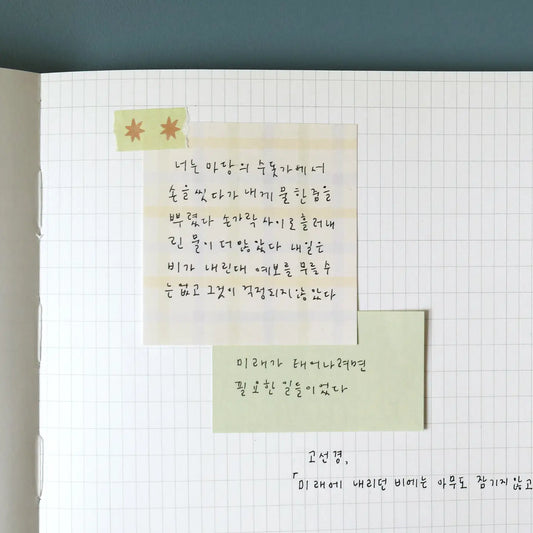 너는 마당의 수돗가에서
손을 씻다가 내게 물 한 줌을
뿌렸다 손가락 사이로 흘러내
린 물이 더 많았다 내일은
비가 내린대 예보를 무를 수
는 없고 그것이 걱정되지 않았다
미래가 태어나려면
필요한 일들이었다
고선경,
「미래에 내리던 비에는 아무도 잠기지 않고